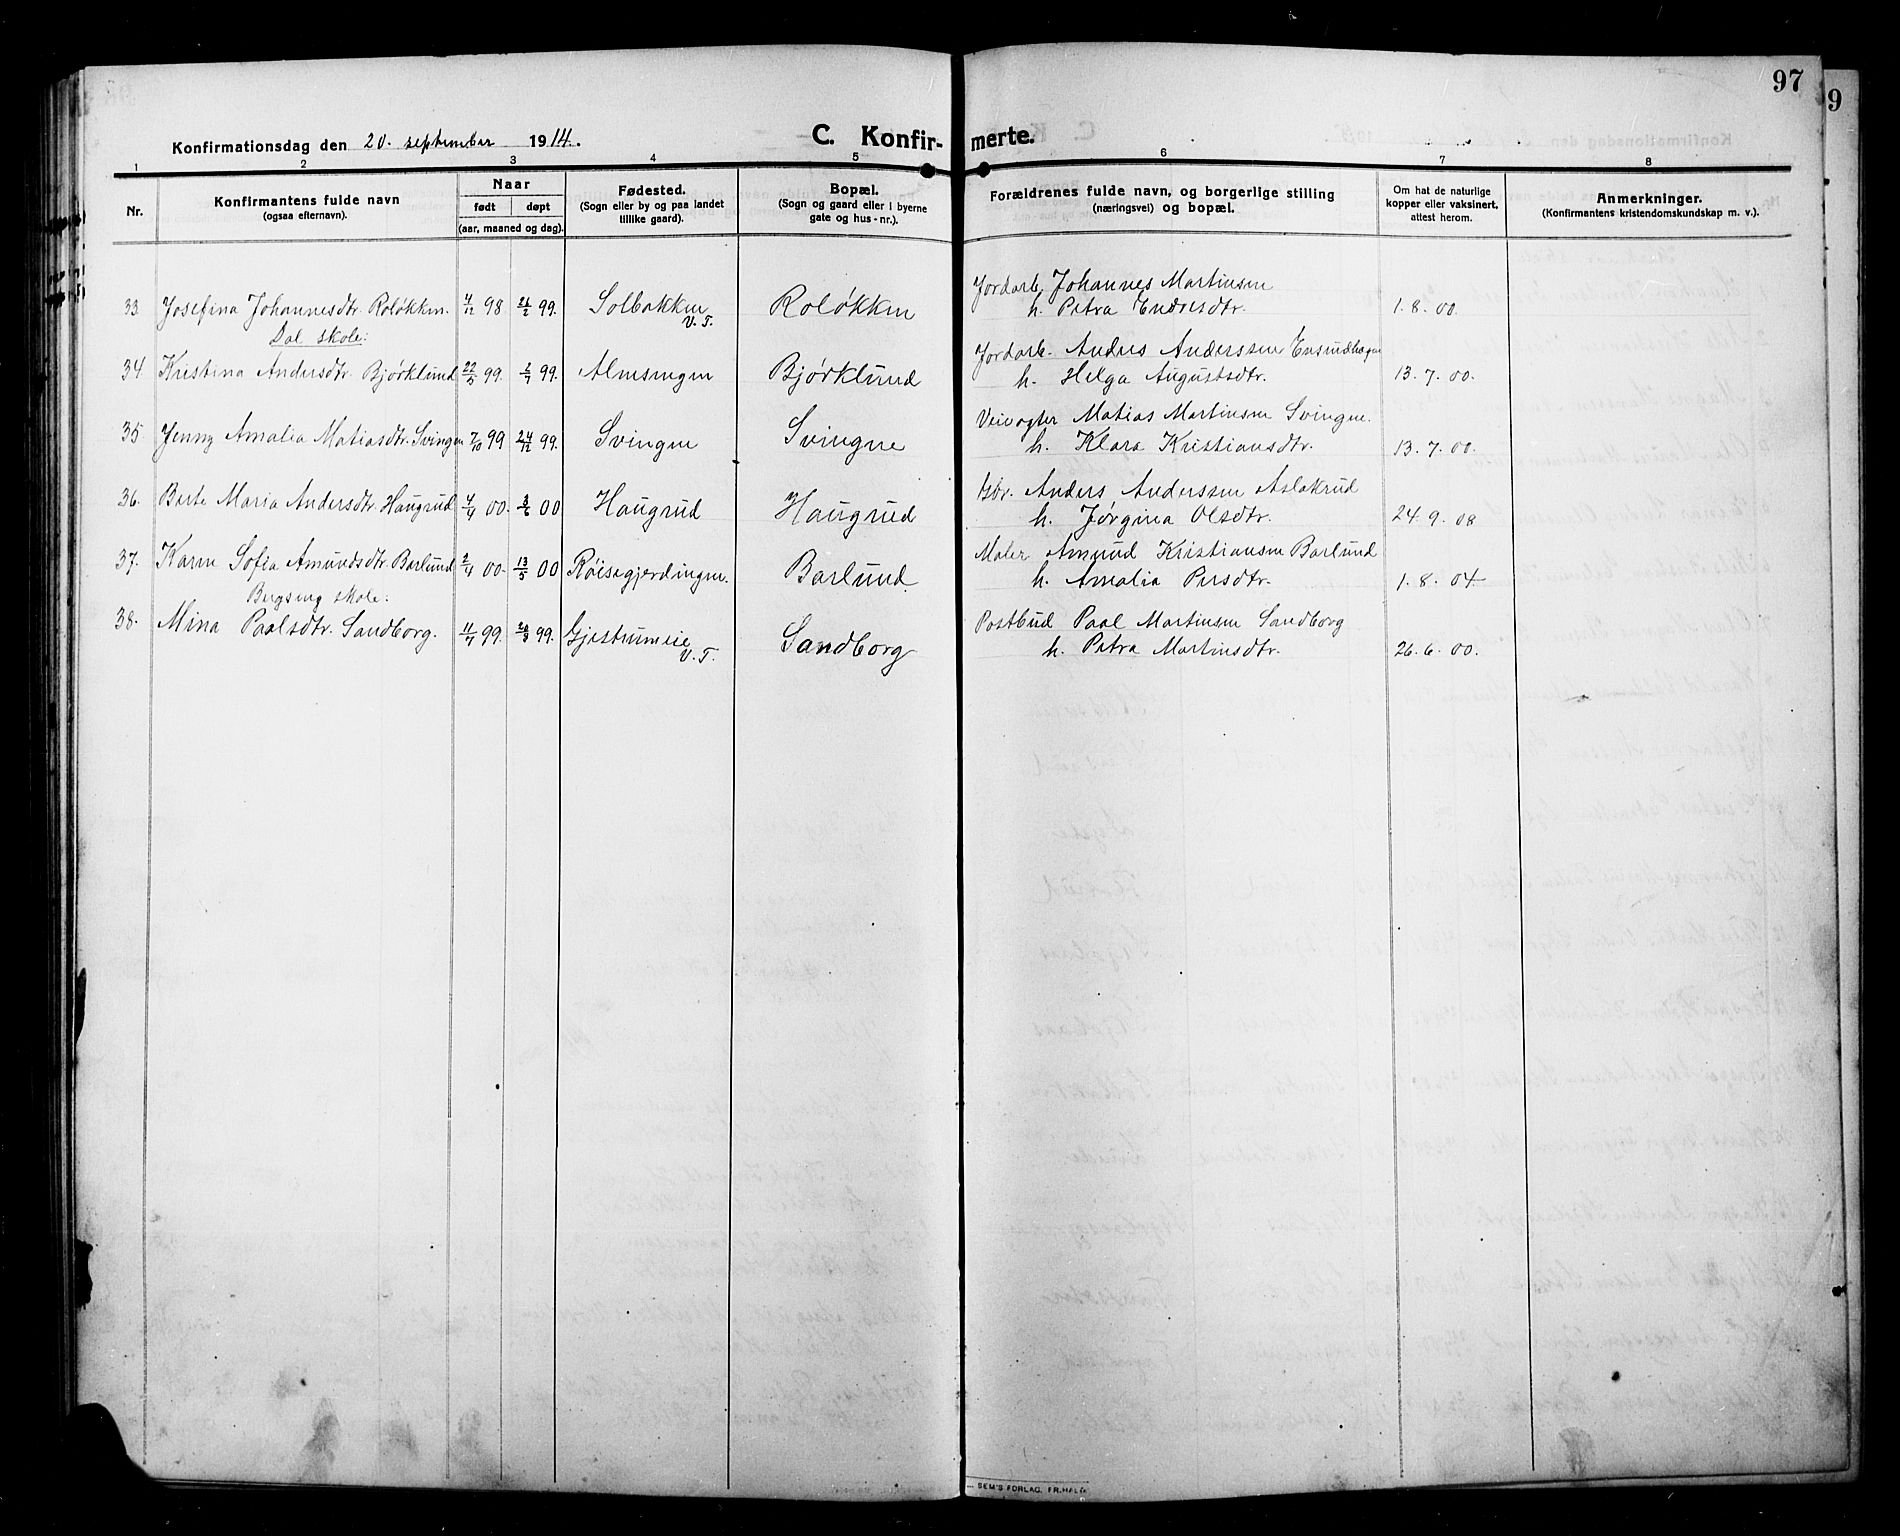 97
9
Konfirmationsdag den 20. september 1914.
C. Konfirmerte.
1 2 3 4 5 6 7 8
Nr.
Konfirmantens fulde navn
(ogsaa efternavn).
Naar
født døpt
(aar, maaned og dag).
Fødested.
(Sogn eller by og paa landet
tillike gaard).
Bopæl.
(Sogn og gaard eller i byerne
gate og hus-nr.).
Forældrenes fulde navn, og borgerlige stilling
(næringsvei) og bopæl.
Om hat de naturlige
kopper eller vaksinert,
attest herom.
Anmerkninger.
(Konfirmantens kristendomskundskap m. v.).
33. Josefina Johannesdtr. Roløkken. 4/12 98 26/2 99. Solbakken V. T. Roløkken Jordarb. Johannes Martinsen
h. Petra Endresdtr. 1.8.00.
Dal skole:
34. Kristina Andersdtr. Bjørklund 22/5 99. 2/7 99. Almsengen Bjørklund Jordarb. Anders Anderssen
h. Helga Augustsdtr. 13.7.00.
35. Jenny Amalia Matiasdtr. Svingen 7/10 99 24/12 99. Svingen Svingen Veivogter Matias Martinsen Svingen.
h. Klara Kristiansdtr. 13.7.00.
36. Berte Maria Andersdtr. Haugrud 4/4 00. 3/6 00 Haugrud Haugrud Gbr. Anders Anderssen Aslakrud
h. Jørgina Olsdtr. 24.9.08
37. Karen Sofia Amundsdtr. Barlund 2/4 00. 13/5 00 Røisegjerdingen. Barlund. Maler Amund Kristiansen Barlund
h. Amalia Persdtr. 1.8.04
Bergseng skole:
38. Mina Paalsdtr. Sandborg. 11/7 99. 20/8 99. Gjestrumeie V. T. Sandborg Postbud Paal Martinsen Sandborg
h. Petra Martinsdtr. 26.6.00.
SEM'S FORLAG, FR.HALD